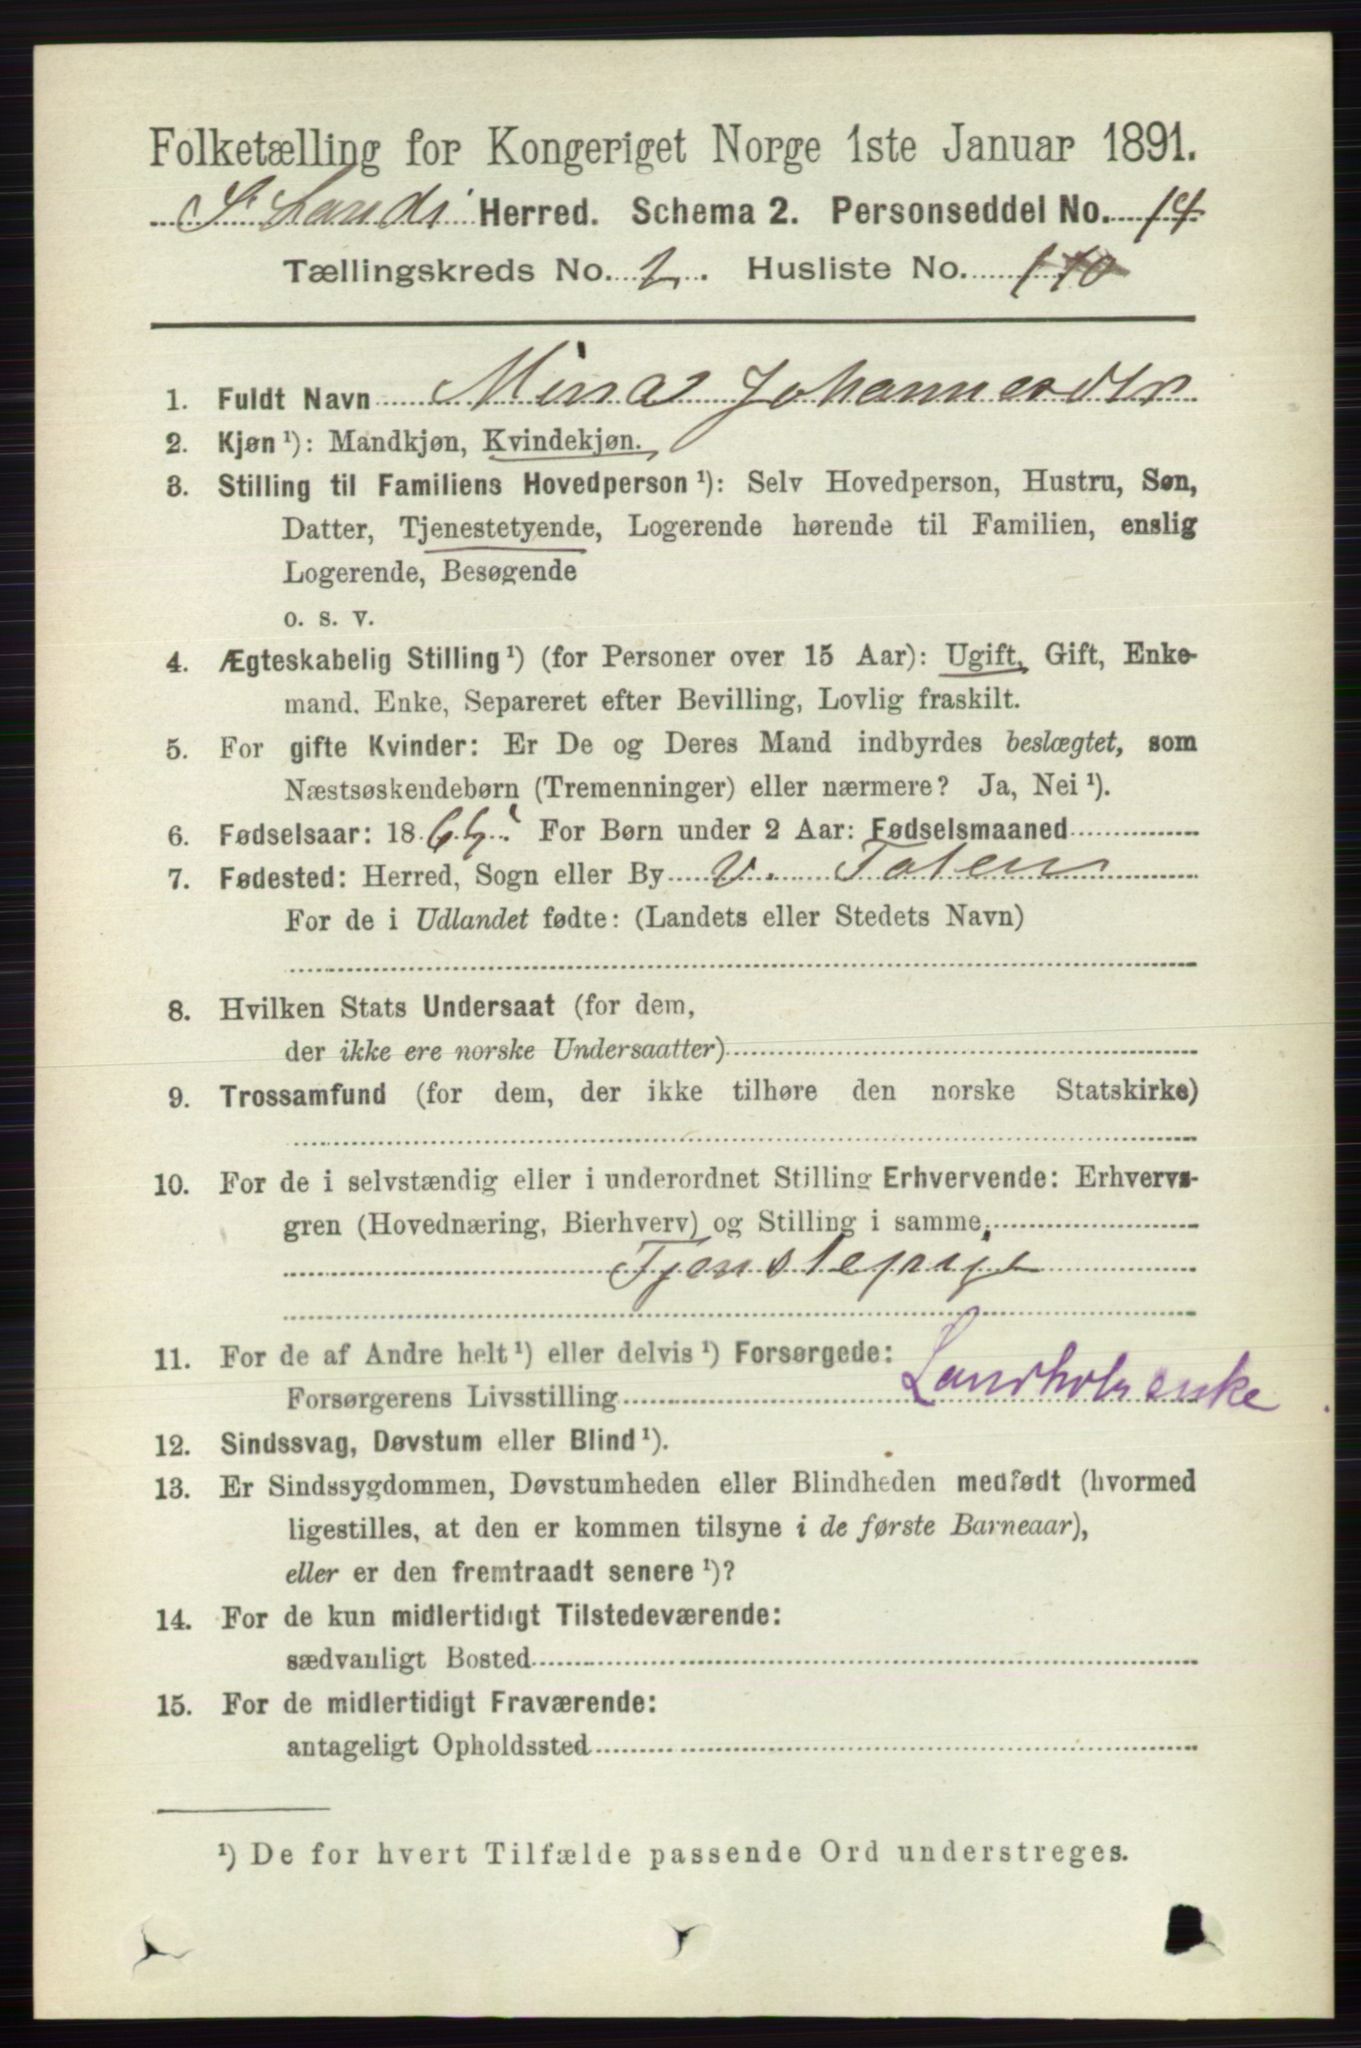 Folketælling for Kongeriget Norge 1ste Januar 1891.
S. Lands Herred. Schema 2. Personseddel No. 14
Tællingskreds No. 1. Husliste No. 110
1. Fuldt Navn Mina Johannesdtr
2. Kjøn ¹): Mandkjøn, Kvindekjøn.
3. Stilling til Familiens Hovedperson ¹): Selv Hovedperson, Hustru, Søn,
Datter, Tjenestetyende, Logerende hørende til Familien, enslig
Logerende, Besøgende
o. s. v.
4. Ægteskabelig Stilling ¹) (for Personer over 15 Aar): Ugift, Gift, Enke-
mand, Enke, Separeret efter Bevilling, Lovlig fraskilt.
5. For gifte Kvinder: Er De og Deres Mand indbyrdes beslægtet, som
Næstsøskendebørn (Tremenninger) eller nærmere? Ja, Nei ¹).
6. Fødselsaar: 18 For Børn under 2 Aar: Fødselsmaaned
7. Fødested: Herred, Sogn eller By V. Toten
For de i Udlandet fødte: (Landets eller Stedets Navn)
8. Hvilken Stats Undersaat (for dem,
der ikke ere norske Undersaatter)
9. Trossamfund (for dem, der ikke tilhøre den norske Statskirke)
10. For de i selvstændig eller i underordnet Stilling Erhvervende: Erhvervs-
gren (Hovednæring, Bierhverv) og Stilling i samme.
Tjenstepige
11. For de af Andre helt ¹) eller delvis ¹) Forsørgede:
Forsørgerens Livsstilling
12. Sindssvag, Døvstum eller Blind ¹).
13. Er Sindssygdommen, Døvstumheden eller Blindheden medfødt (hvormed
ligestilles, at den er kommen tilsyne i de første Barneaar),
eller er den fremtraadt senere ¹)?
14. For de kun midlertidigt Tilstedeværende:
sædvanligt Bosted
15. For de midlertidigt Fraværende:
antageligt Opholdssted
¹) De for hvert Tilfælde passende Ord understreges.